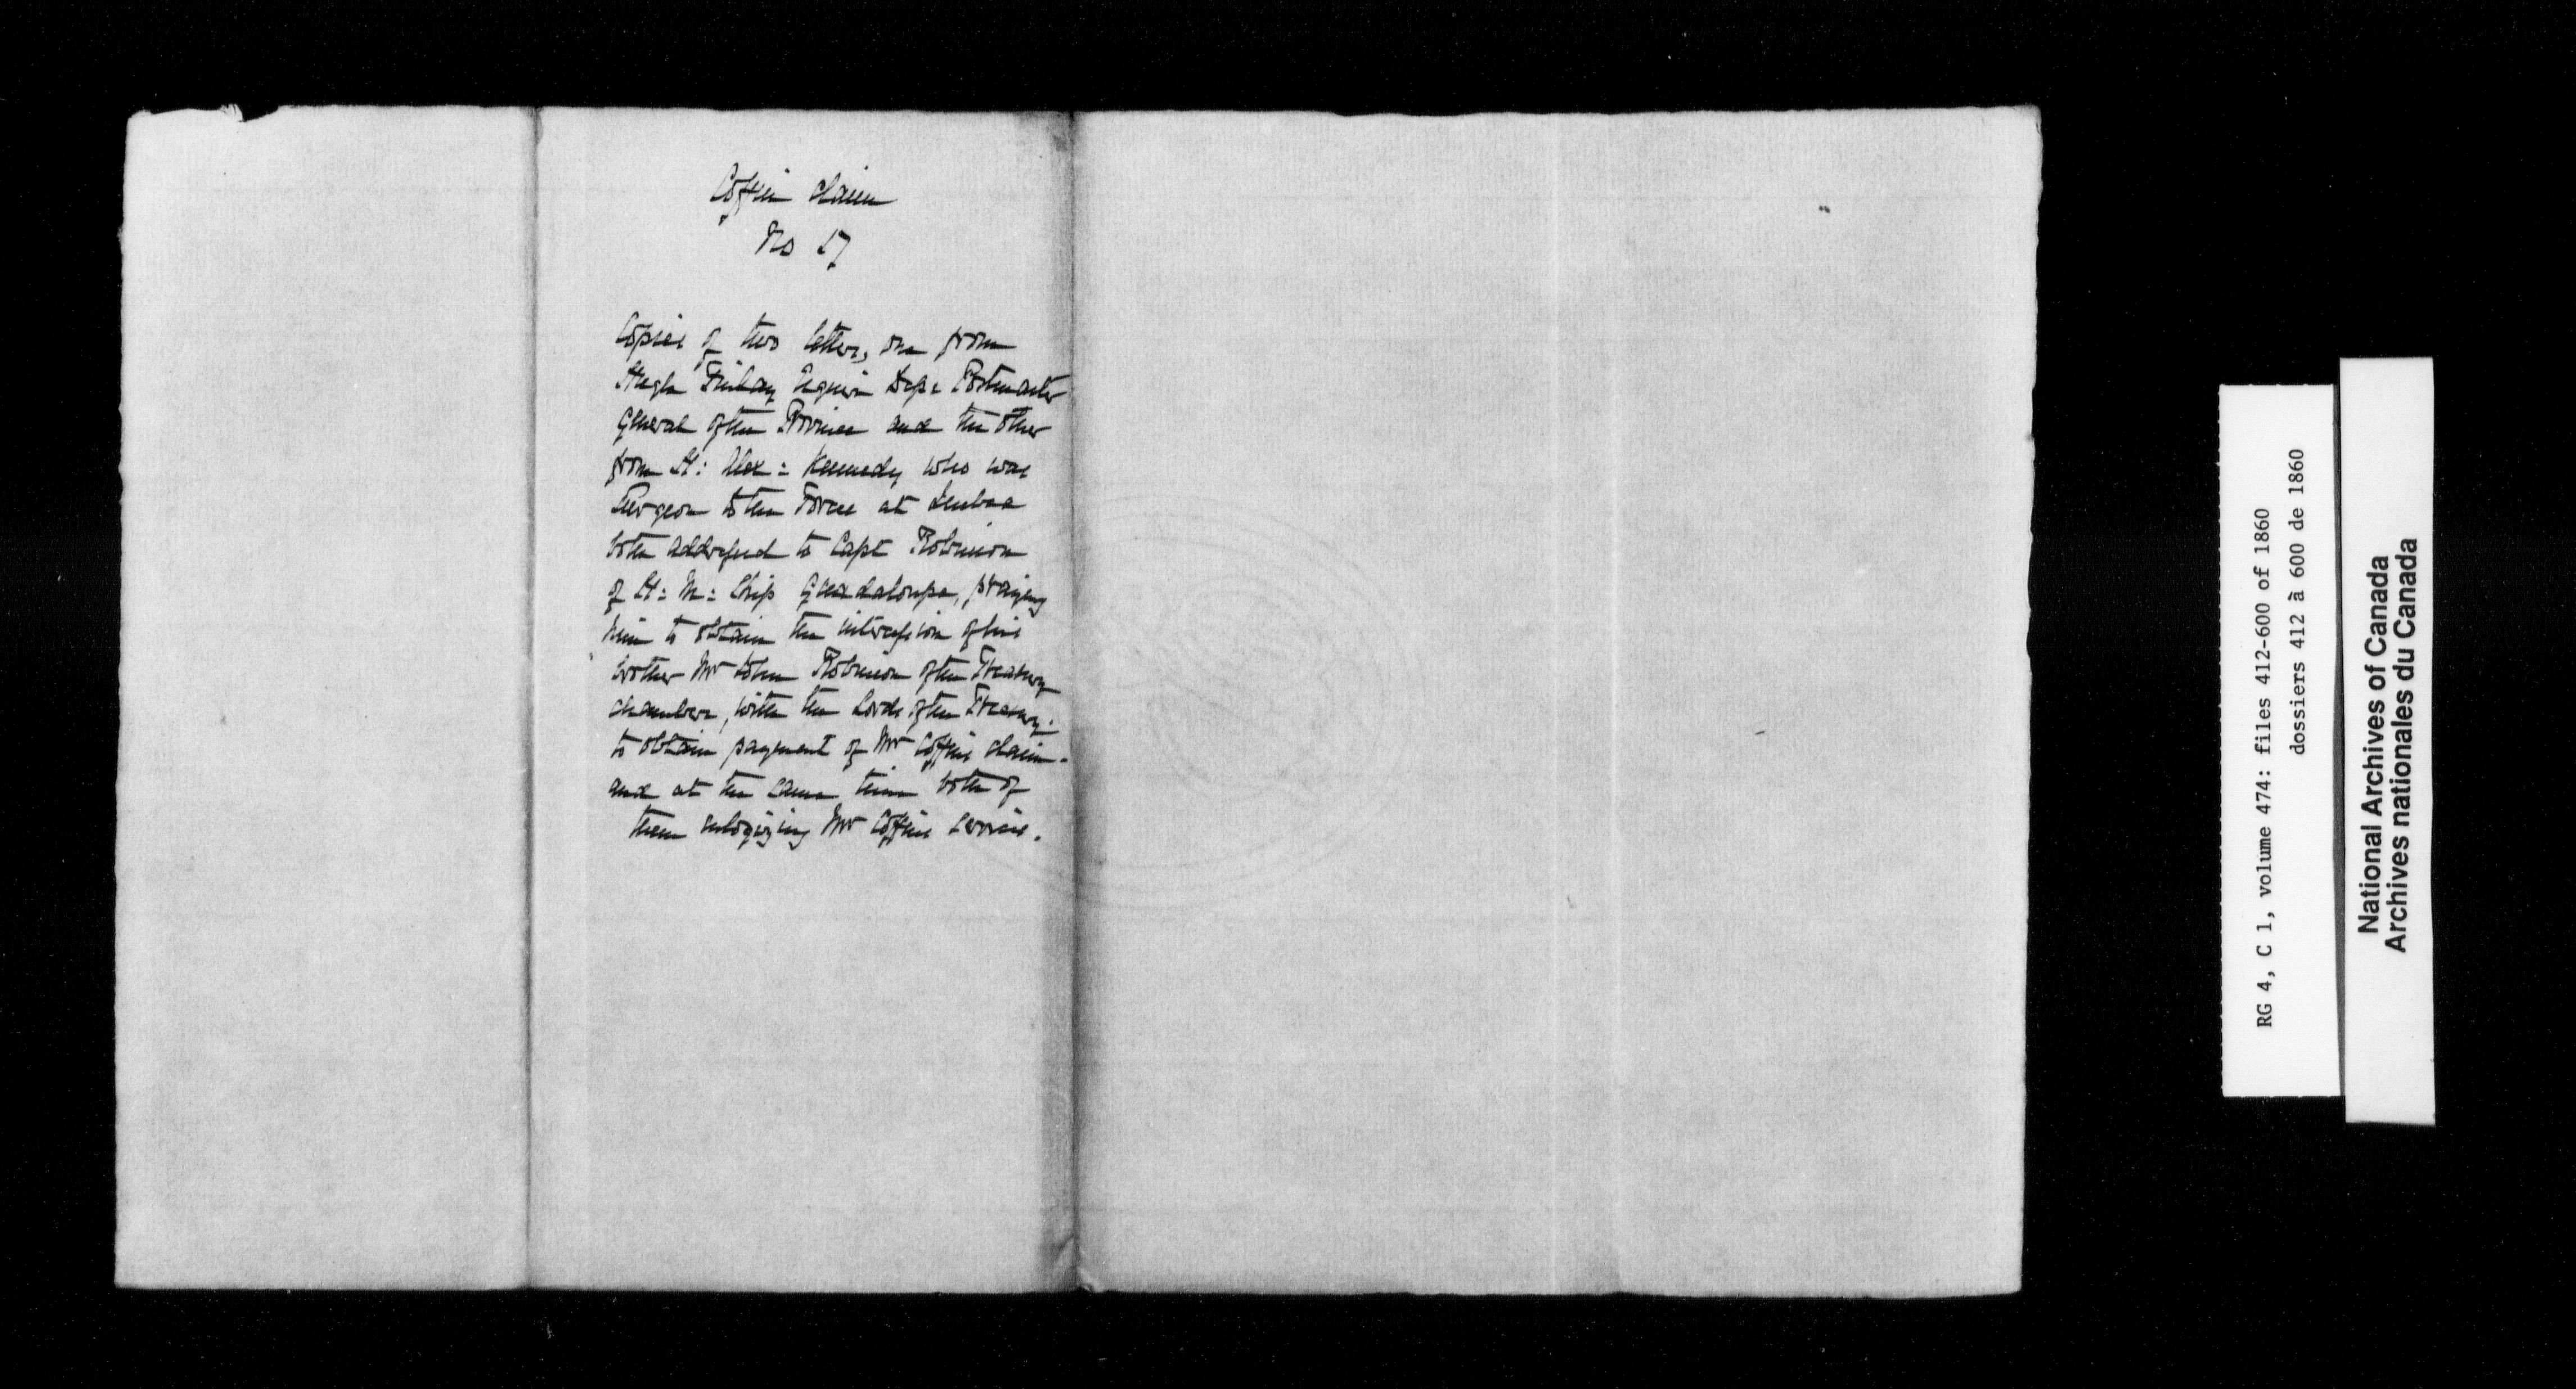 Coffin claim
No 17
Copies of two letters, one from
Hugh Finlay Esquire Dep: Postmaster
General of the Province and the other
from H: Alex: Kennedy who was
Surgeon to the Forces at Quebec
both addressed to Capt Robinson
of H: M: Ship Guadaloupe, praying
him to obtain the intercession of his
brother Mr John Robinson of the Treasury
chambers, with the Lords of the Treasury.
to obtain payment of Mr Coffins claim.
and at the same time both of
them eulogizing Mr Coffins services.
RG 4, C 1, volume 474: files 412-600 of 1860
dossiers 412 à 600 de 1860
National Archives of Canada
Archives nationales du Canada